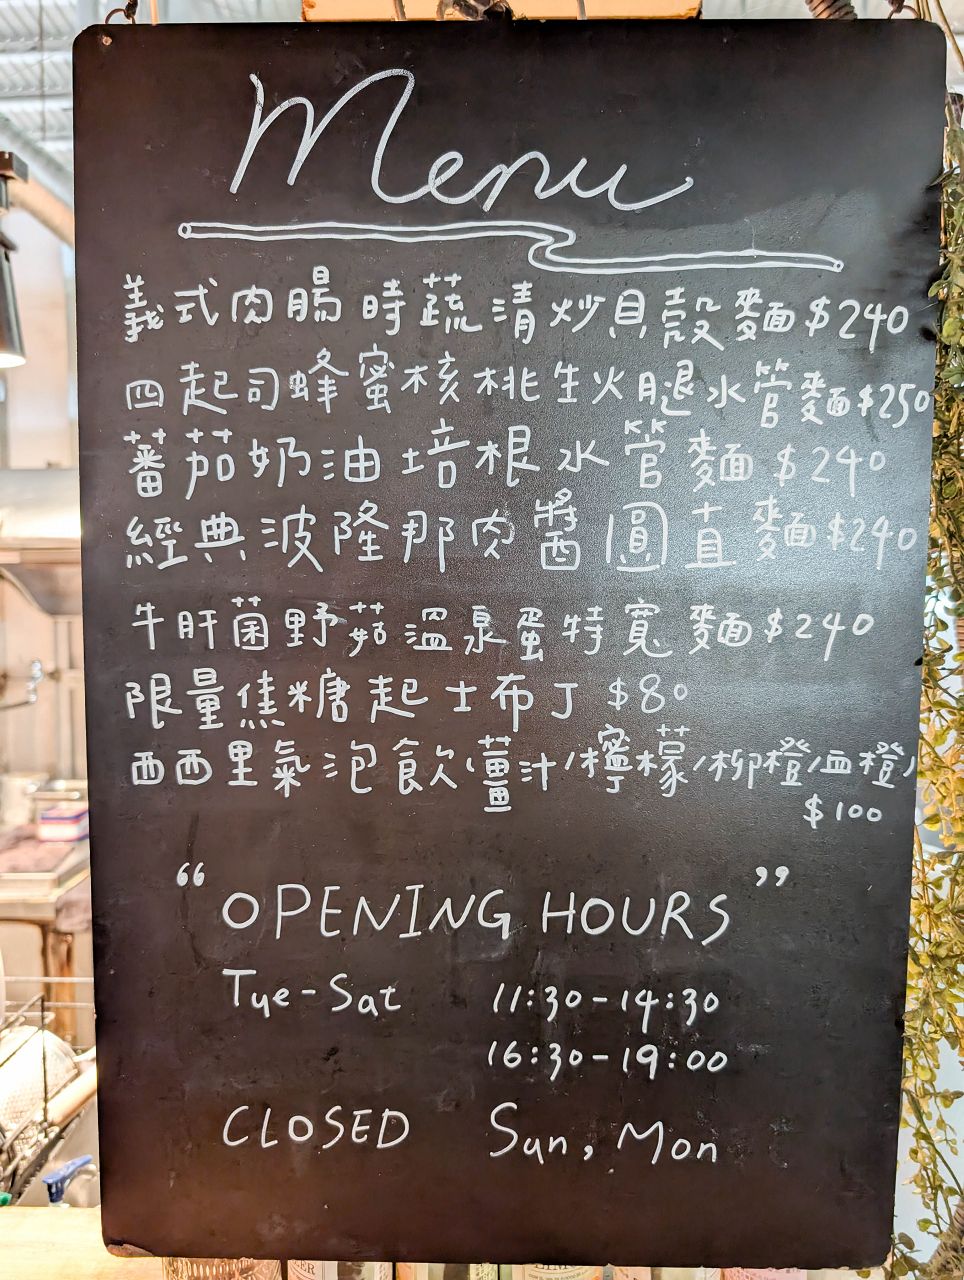 Menu
義式肉腸時蔬清炒貝殼麵 $240
四起司蜂蜜核桃生火腿水管麵 $250
蕃茄奶油培根水管麵 $240
經典波隆那肉醬圓直麵 $240
牛肝菌野菇溫泉蛋特寬麵 $240
限量焦糖起士布丁 $80
西西里氣泡飲(薑汁/檸檬/柳橙/血橙)
$100
“OPENING HOURS”
Tue-Sat 11:30-14:30
16:30-19:00
CLOSED Sun, Mon